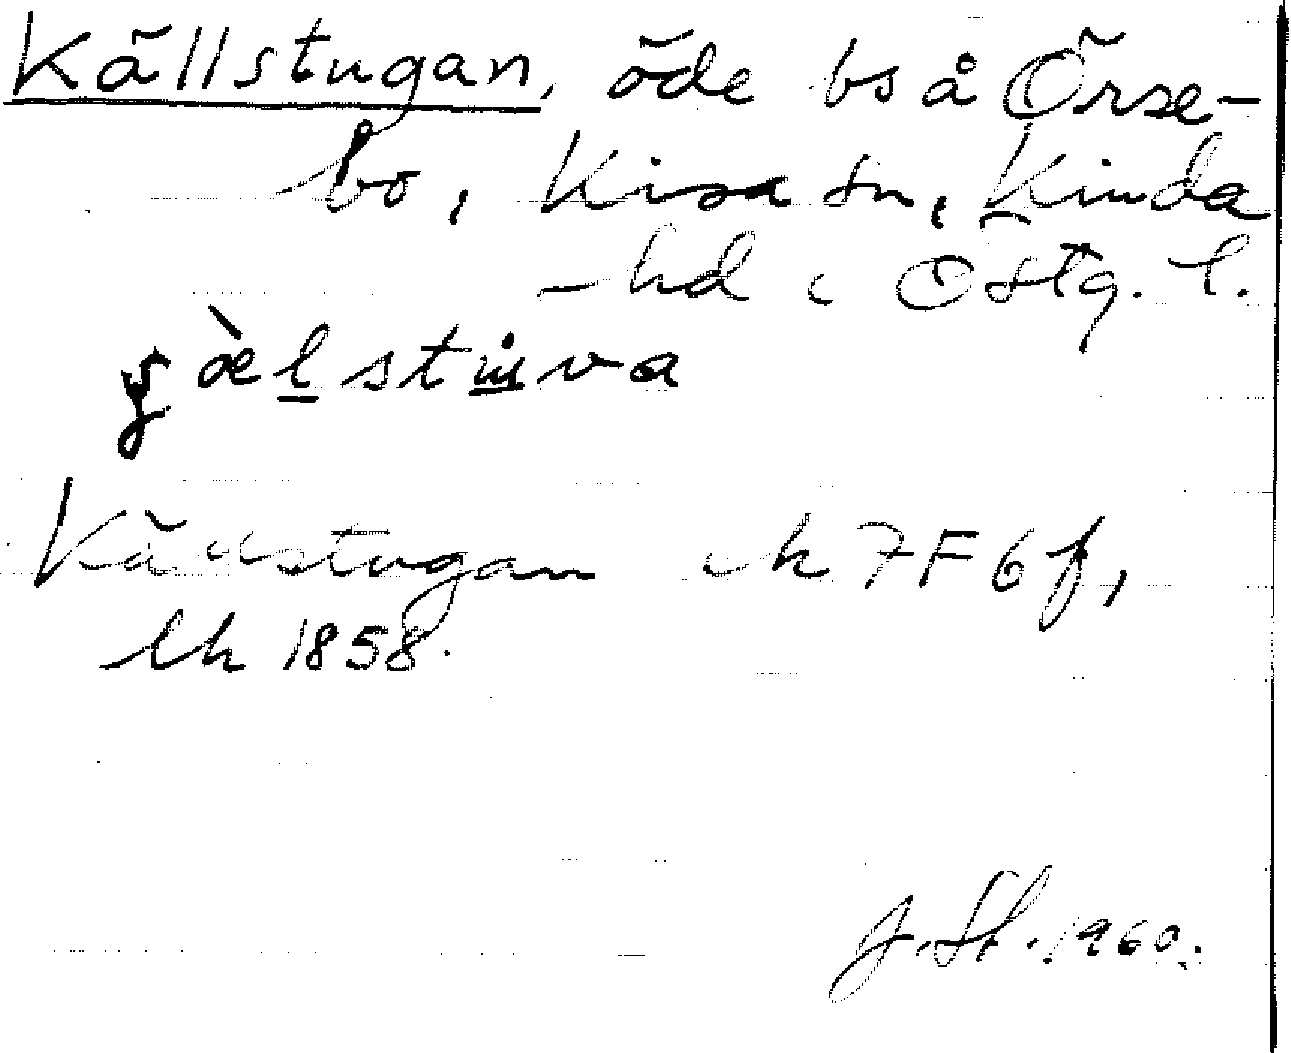 Källstugan, öde bs å Örse-
bo, Kisa sn, Kinda
hd i Östg. l.
Källstugan ek 7F6f,
lk 1858.
J. St. 1960.